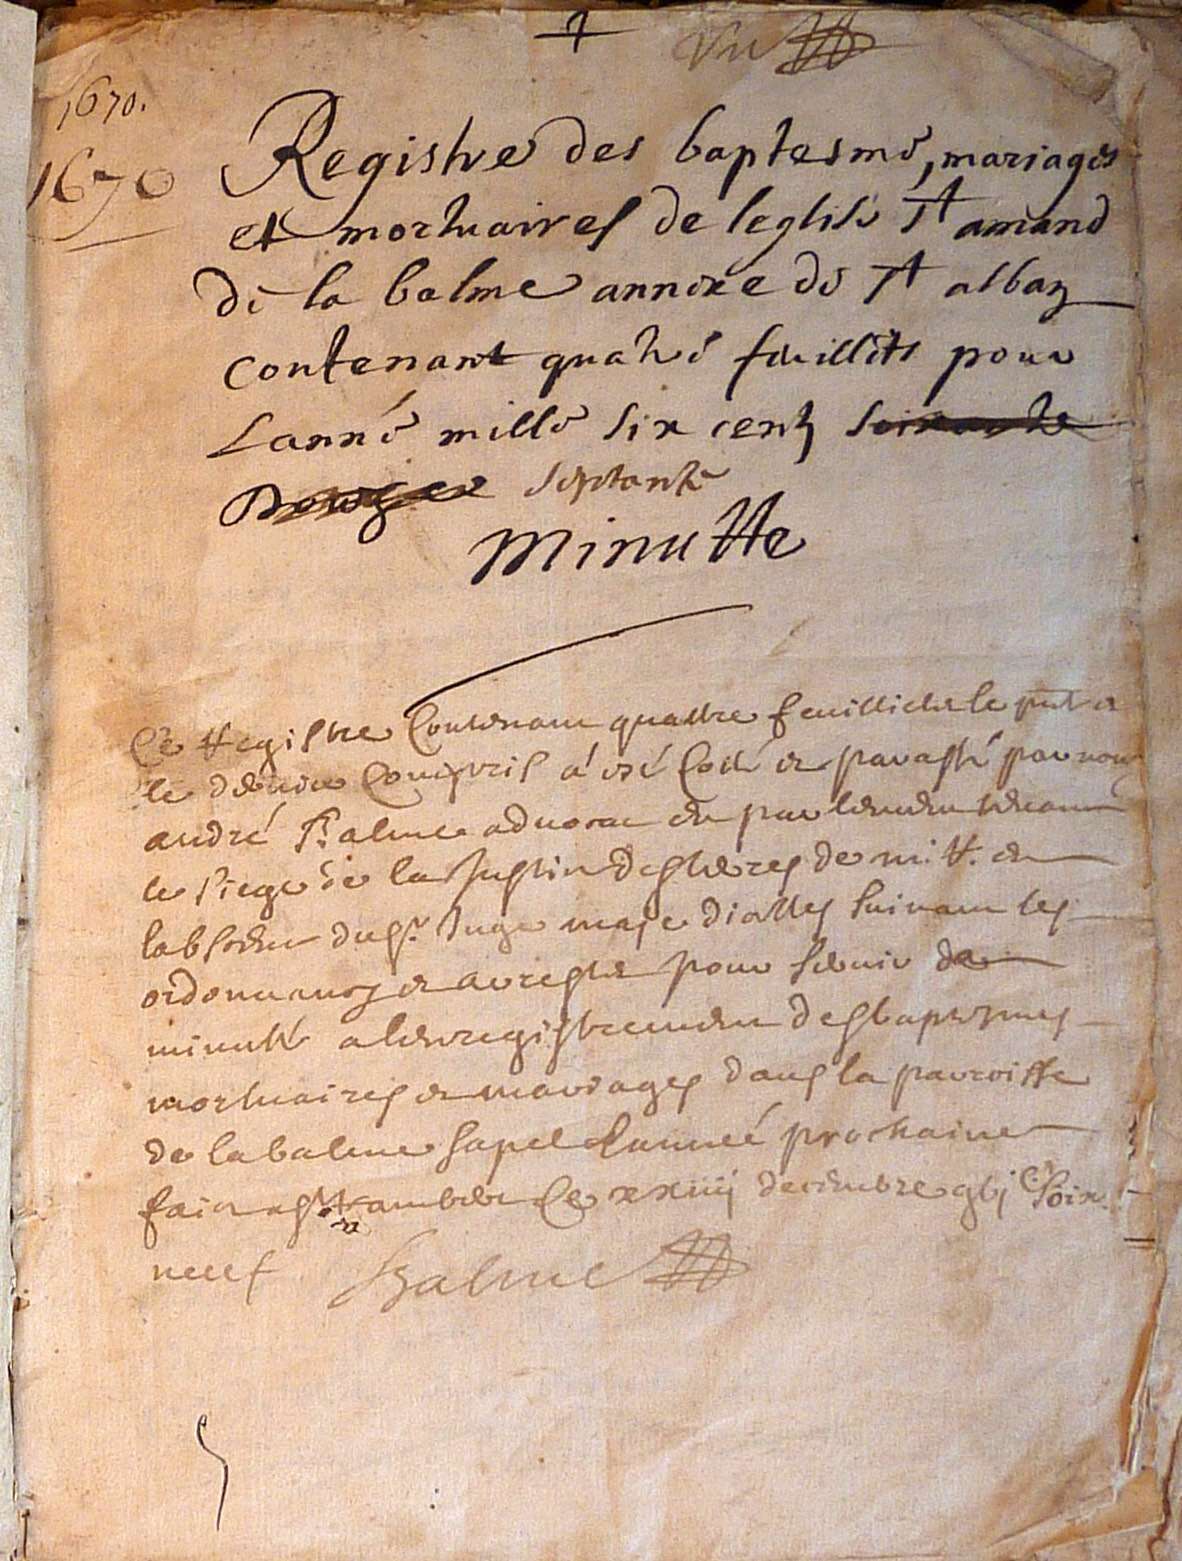 Vn
1670.
1670
Registre des baptesme, mariages
et mortuaires de leglise St amand
de la balme annexe de St alban
contenant quatre feuillets pour
Lanné mille six centz soixante
Douze septante
Minutte
Ce Registre Contenant quattre feuillietz le pnt et
le dernier Compris a esté Cotté et paraffé par nous
andré Balme advocat en parlement tenant
le siege de la Justice des terres de
labsence du Sr Juge maje suivant les
ordonnances et arrests pour servir de
minutte a lenregistrement des baptesmes
mortuaires et mariages dans la parroisse
de la balme sapel Lanneé prochaine
fait a St Rambert Ce xxiiij decembre gbj C soix
neuf Balme